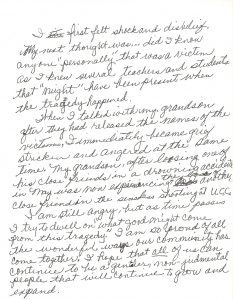 I first felt shock and disbelief.
My next thought was... did I know
anyone "personally" that was a victim
as I knew several teachers and students
that "might" have been present when
the tragedy happened.
Then I talked with my grandson
after they had released the names of the
victims, I immediately became grief
stricken and angered at the same
time. My grandson, after loosing one of
his close friends in a drowning accident
in May was now experiencing
close friends in the senseless shooting at UCC.
I am still angry, but as time passes
I try to dwell on what good might come
from this tragedy. I am so proud of all
the wonderful ways our community has
come together. I hope that all of us can
continue to be a gentler, non-judgmental
people that will continue to grow and
expand.